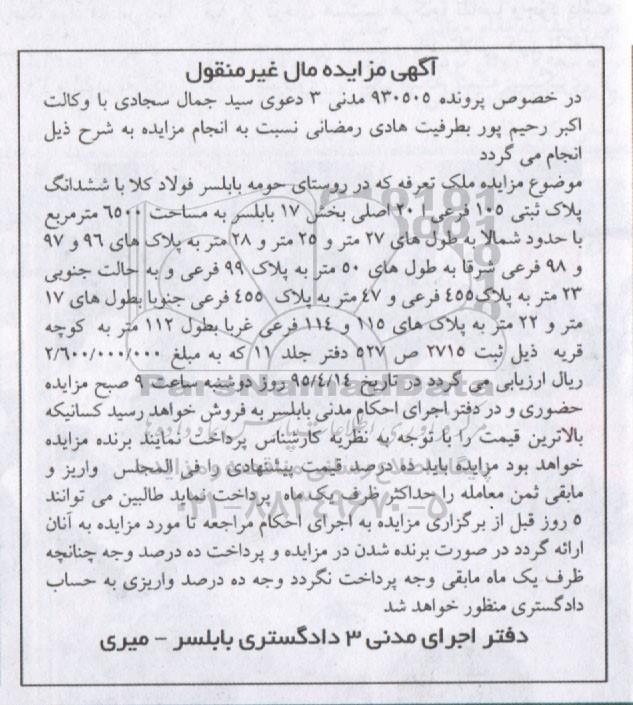 آگهی مزایده مال غیرمنقول
در خصوص پرونده ۹۳۰۵۰۵ مدنی ۳ دعوی سید جمال سجادی با وکالت
اکبر رحیم پور بطرفیت هادی رمضانی نسبت به انجام مزایده به شرح ذیل
انجام می گردد
موضوع مزایده ملک تعرفه که در روستای حومه بابلسر فولاد کلا با ششدانگ
پلاک ثبتی ۱۰۵ فرعی از ۲۰ اصلی بخش ۱۷ بابلسر به مساحت ۶۵۰۰ مترمربع
با حدود شمالا به طول های ۲۷ متر و ۲۵ متر و ۲۸ متر به پلاک های ۹۶ و ۹۷
و ۹۸ فرعی شرقا به طول های ۵۰ متر به پلاک ۹۹ فرعی و به حالت جنوبی
۲۳ متر به پلاک۴۵۵ فرعی و ۴۷ متر به پلاک ۴۵۵ فرعی جنوبا بطول های ۱۷
متر و ۲۲ متر به پلاک های ۱۱۵ و ۱۱۴ فرعی غربا بطول ۱۱۲ متر به کوچه
قریه ذیل ثبت ۲۷۱۵ ص ۵۲۷ دفتر جلد ۱۱ که به مبلغ ۲/۶۰۰/۰۰۰/۰۰۰
ریال ارزیابی می گردد در تاریخ ۹۵/۴/۱۴ روز دوشنبه ساعت ۹ صبح مزایده
حضوری و در دفتر اجرای احکام مدنی بابلسر به فروش خواهد رسید کسانیکه
بالاترین قیمت را با توجه به نظریه کارشناس پرداخت نمایند برنده مزایده
خواهد بود مزایده باید ده درصد قیمت پیشنهادی را فی المجلس واریز و
مابقی ثمن معامله را حداکثر ظرف یک ماه پرداخت نماید طالبین می توانند
۵ روز قبل از برگزاری مزایده به اجرای احکام مراجعه تا مورد مزایده به آنان
ارائه گردد در صورت برنده شدن در مزایده و پرداخت ده درصد وجه چنانچه
ظرف یک ماه مابقی وجه پرداخت نگردد وجه ده درصد واریزی به حساب
دادگستری منظور خواهد شد
دفتر اجرای مدنی ۳ دادگستری بابلسر - میری
ParsNamadData
۰۲۱-۸۸۳۴۹۶۷۰-۵